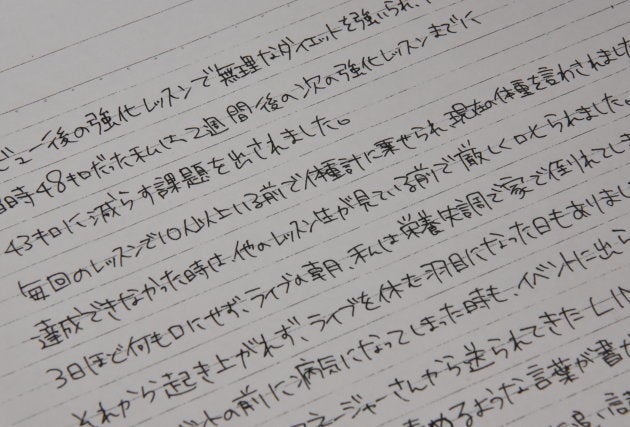 ビュー後の強化レッスンで無理なダイエットを強いられ、
時48キロだった私は、2週間後の次の強化レッスンまでに
43キロに減らす課題を出されました。
毎回のレッスンで10人以上いる前で体重計に乗せられ、現在の体重を言わされました
達成できなかった時は、他のレッスン生が見ている前で厳しく叱られました。
3日ほど何も口にせず、ライブの朝、私は栄養失調で家で倒れてしま
それから起き上がれず、ライブを休む羽目になった日もありまし
の前に病気になってしまった時も、イベントに出
ネージャーさんから送られてきたLIN
めるような言葉が書か